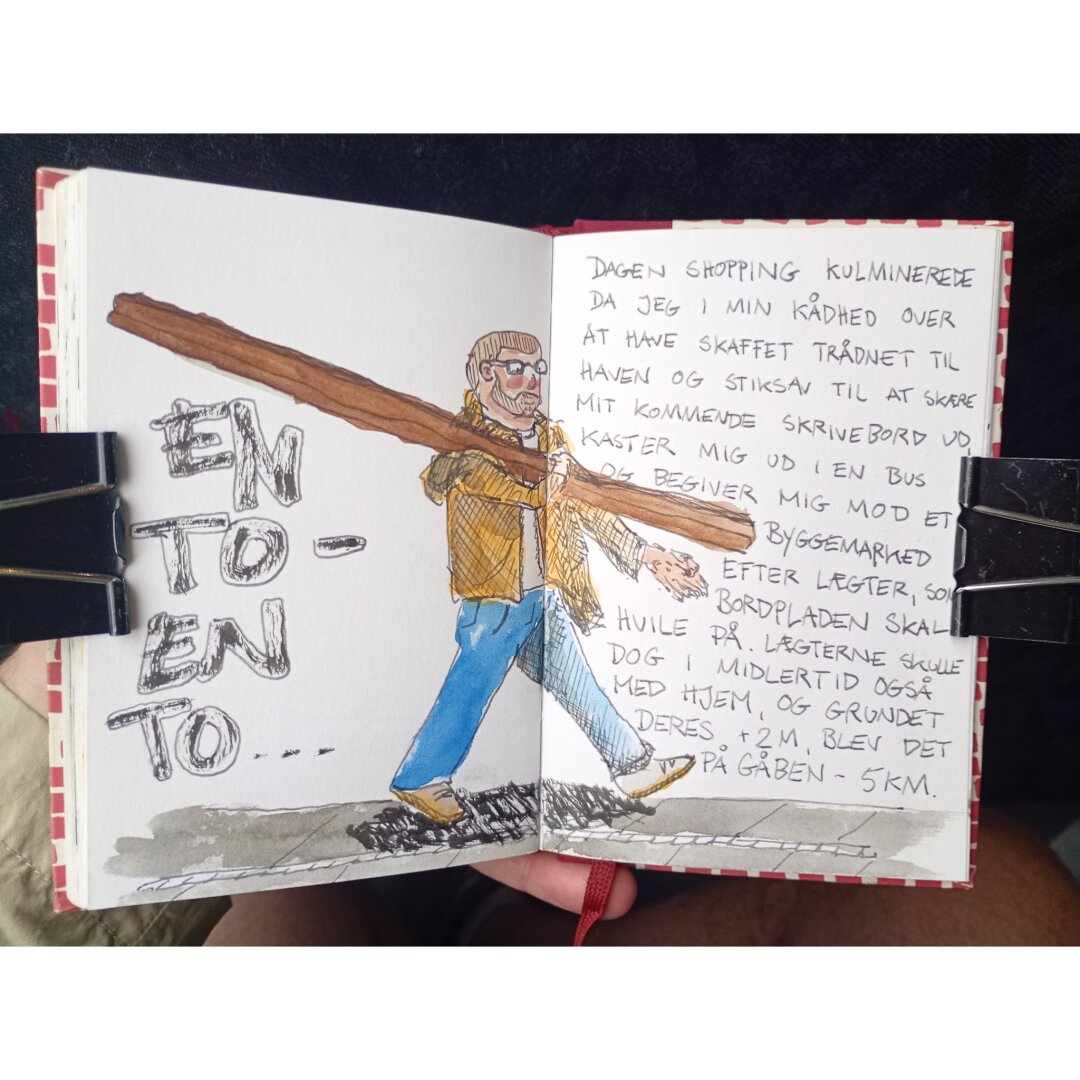 EN
TO -
EN
TO . . . .
DAGEN SHOPPING KULMINEREDE
DA JEG I MIN KÅDHED OVER
AT HAVE SKAFFET TRÅDNET TIL
HAVEN OG STIKSAV TIL AT SKÆRE
MIT KOMMENDE SKRIVEBORD UD,
KASTER MIG UD I EN BUS
OG BEGIVER MIG MOD ET
BYGGEMARKED
EFTER LÆGTER, SOM
BORDPLADEN SKAL
HVILE PÅ. LÆGTERNE SKULLE
DOG I MIDLERTID OGSÅ
MED HJEM, OG GRUNDET
DERES +2M, BLEV DET
PÅ GÅBEN - 5KM.